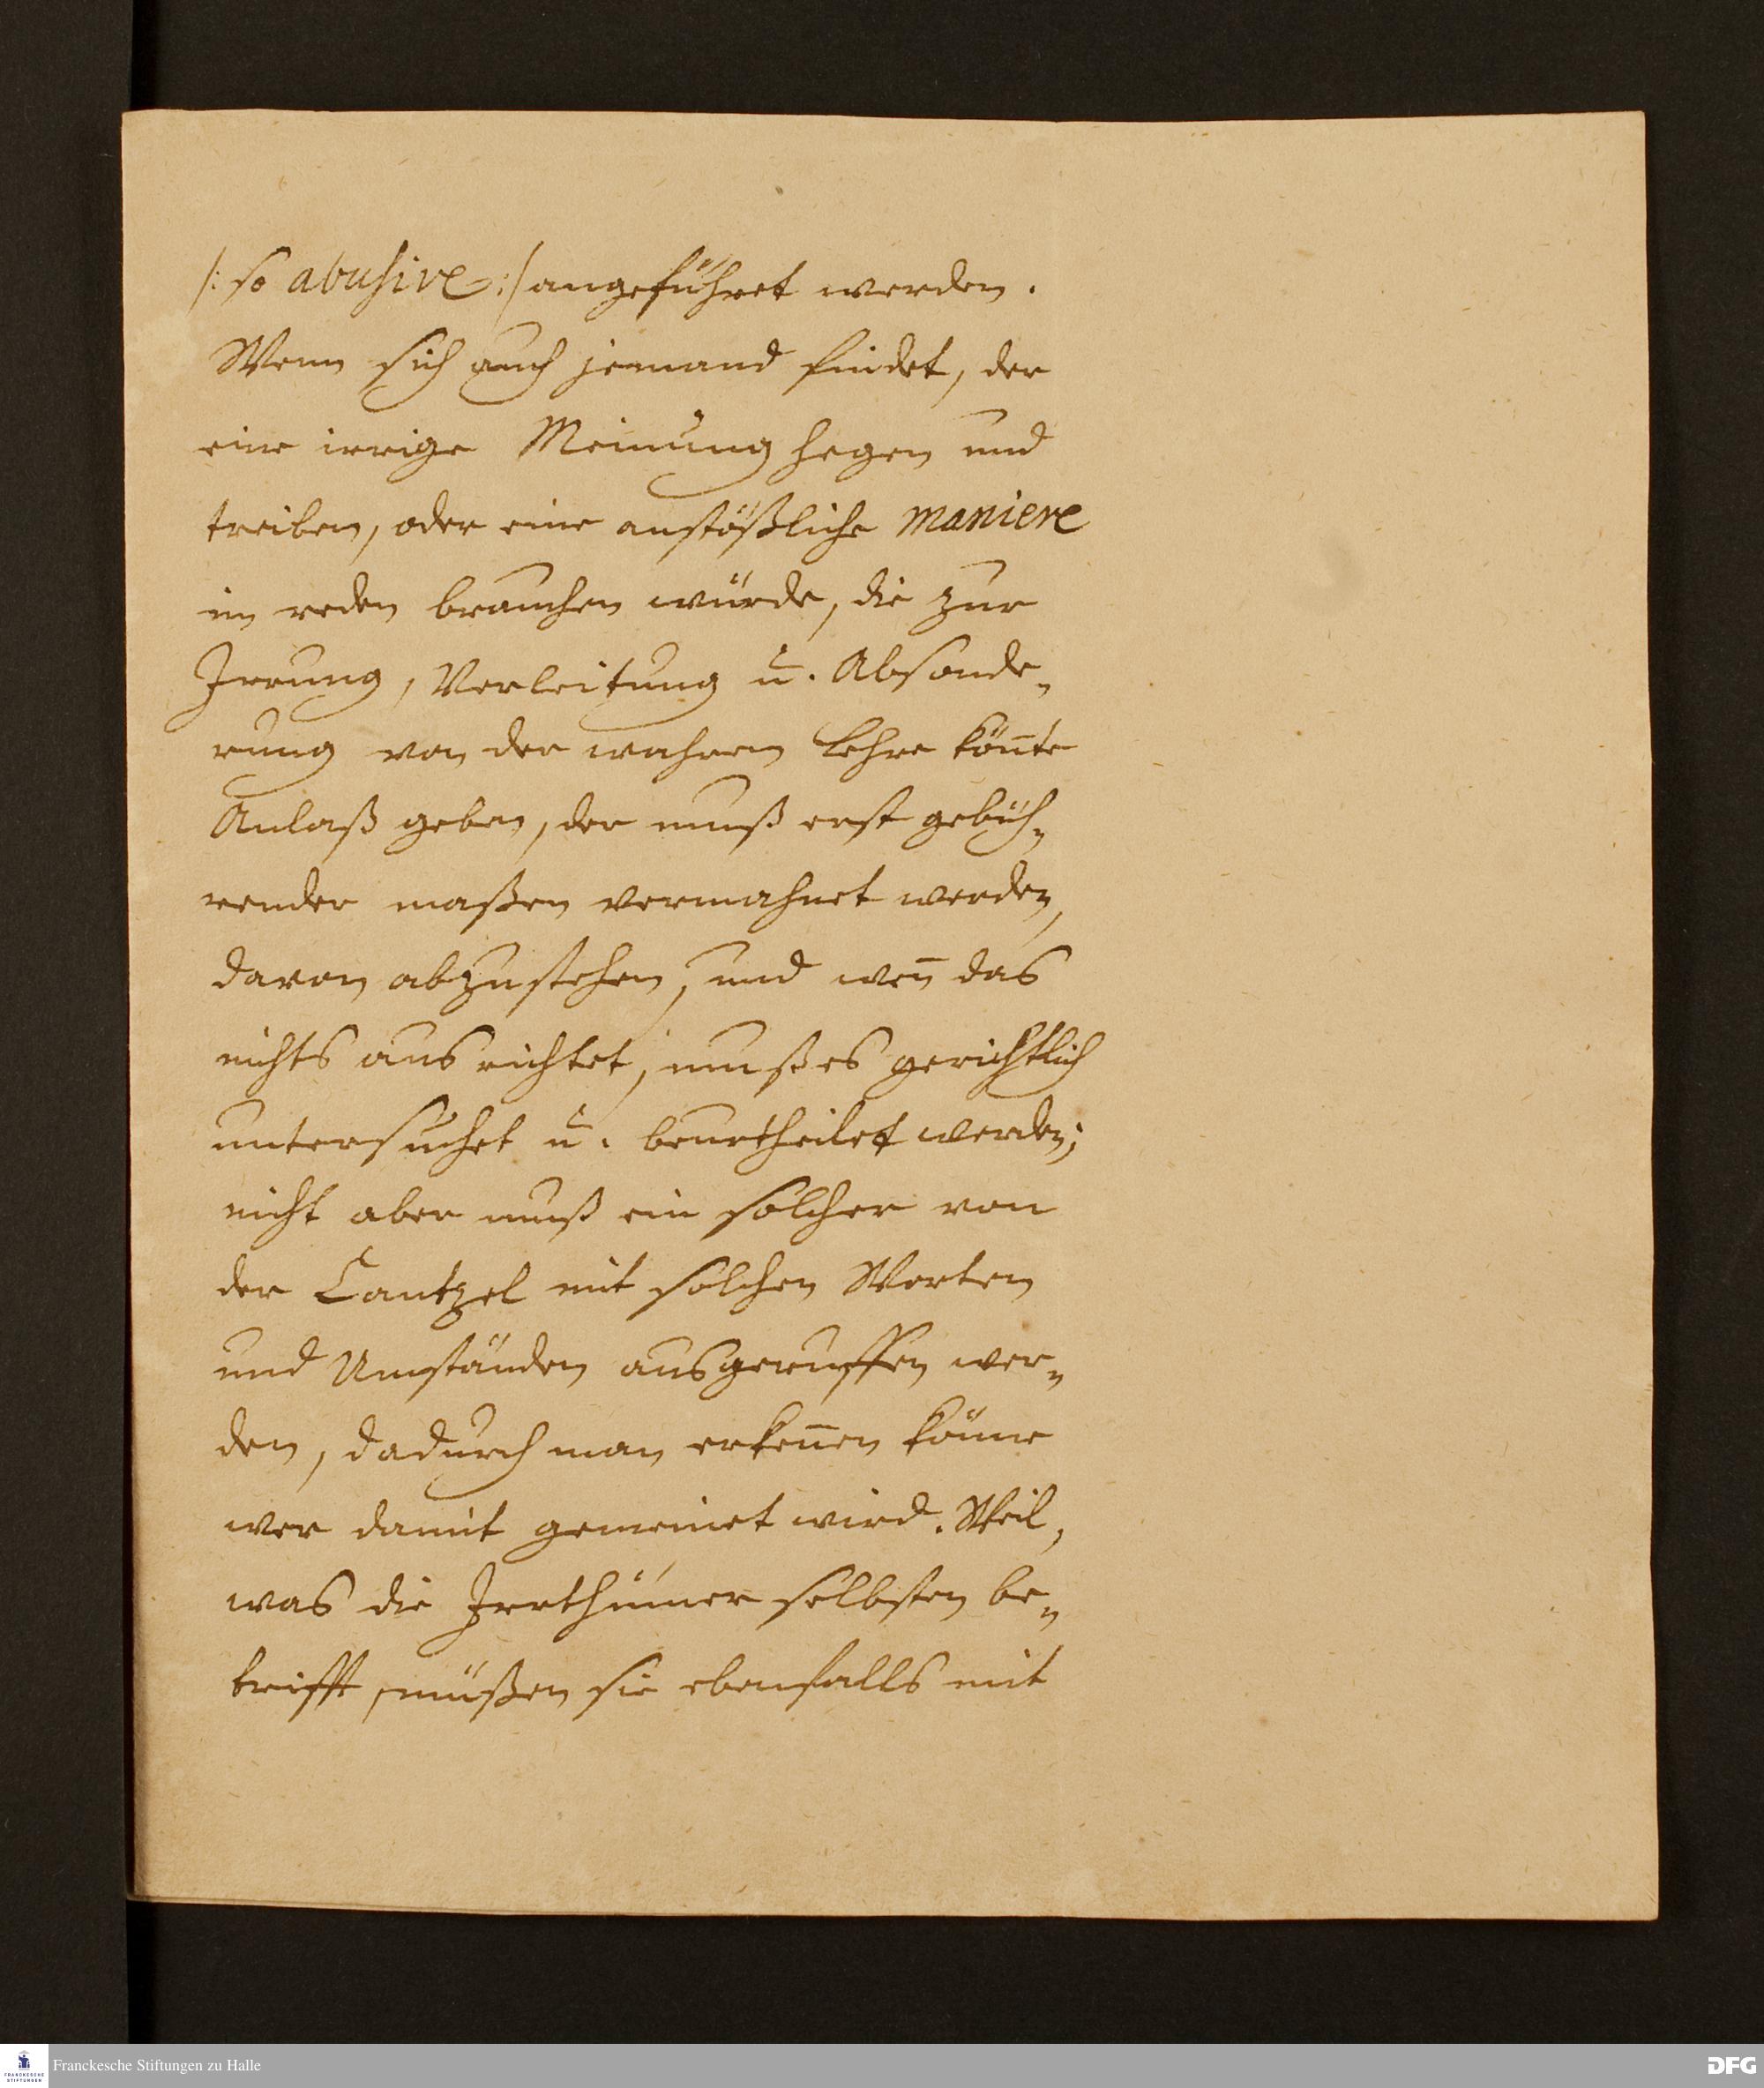 /: so abusive :/ angeführet werden.
Wenn sich auch jemand findet, der
eine irrige Meinung hegen und
treiben, oder eine anstößliche maniere
im reden brauchen würde, die zur
Irrung, Verleitung u. Absonde-
rung von der wahren Lehre kön̄te
Anlaß geben, der muß erst gebüh-
render maßen vermahnet werden,
davon abzustehen, und wen̄ das
nichts aus richtet, muß es gerichtlich
untersuchet u. beurtheilet werden;
nicht aber muß ein solcher von
der Cantzel mit solchen Worten
und Umständen ausgeruffen wer-
den, dadurch man erken̄en könne
wer damit gemeinet wird. Weil,
was die Irrthümer selbsten be-
trifft, müßen sie ebenfalls mit
FRANCKESCHE STIFTUNGEN
Franckesche Stiftungen zu Halle
DFG